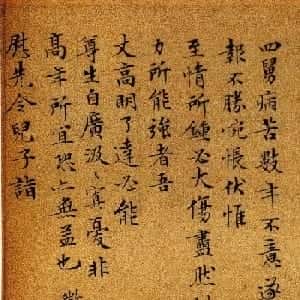 四舅病苦數年不意遂
報不勝惋悵伏惟
至情所鍾必大傷盡然
力所能強者吾
丈高明了達必能
尊生自廣汲〻憂非
高年所宜恐亦無益也
慰先令兒子詣